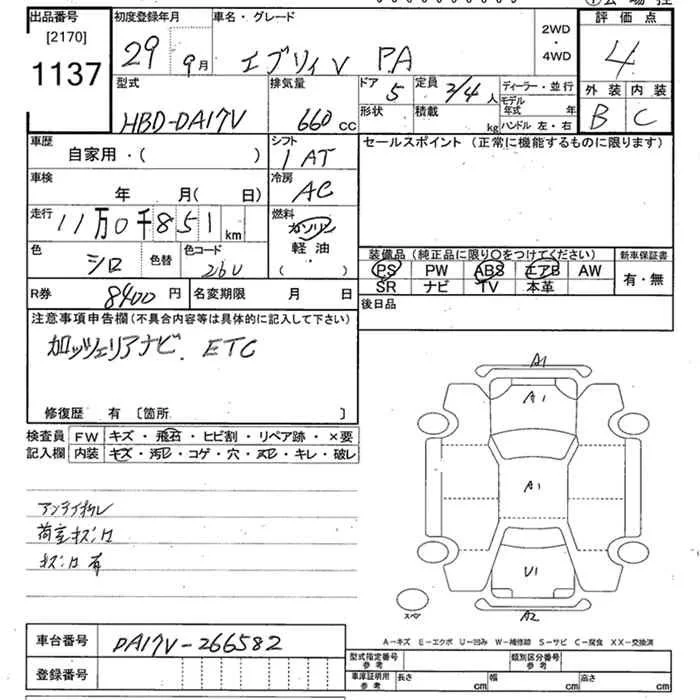 出品番号
[2170]
1137
初度登録年月
29 9月
車名・グレード
エブリィV PA
2WD
・
4WD
評価点
4
外装 内装
B C
型式
HBD-DA17V
排気量
660 cc
ドア 5
形状
定員 2/4 人
積載 kg
ディーラー・並行
モデル年式 年
ハンドル 左・右
車歴
自家用・( )
シフト
1 AT
セールスポイント (正常に機能するものに限ります)
車検
年 月( 日)
冷房
AC
走行
11万0千851 km
燃料
ガソリン
軽油
( )
色
シロ
色替
色コード
26U
装備品 (純正品に限り○をつけてください)
PS PW ABS エアB AW
SR ナビ TV 本革
新車保証書
有・無
R券
8400 円
名変期限 月 日
後日品
注意事項申告欄 (不具合内容等は具体的に記入して下さい)
カロッツェリアナビ. ETC
修復歴 有 〔箇所 〕
検査員
記入欄
FW キズ・飛石・ヒビ割・リペア跡・×要
内装 キズ・汚レ・コゲ・穴・スレ・キレ・破レ
荷室キズ凹
キズ凹 有
A1
A1
A1
U1
A2
スペア
A-キズ E-エクボ U-凹み W-補修跡 S-サビ C-腐食 XX-交換済
車台番号
DA17V-266582
登録番号
型式指定番号
参考
類別区分番号
参考
車庫証明用
参考
長さ cm
幅 cm
高さ cm